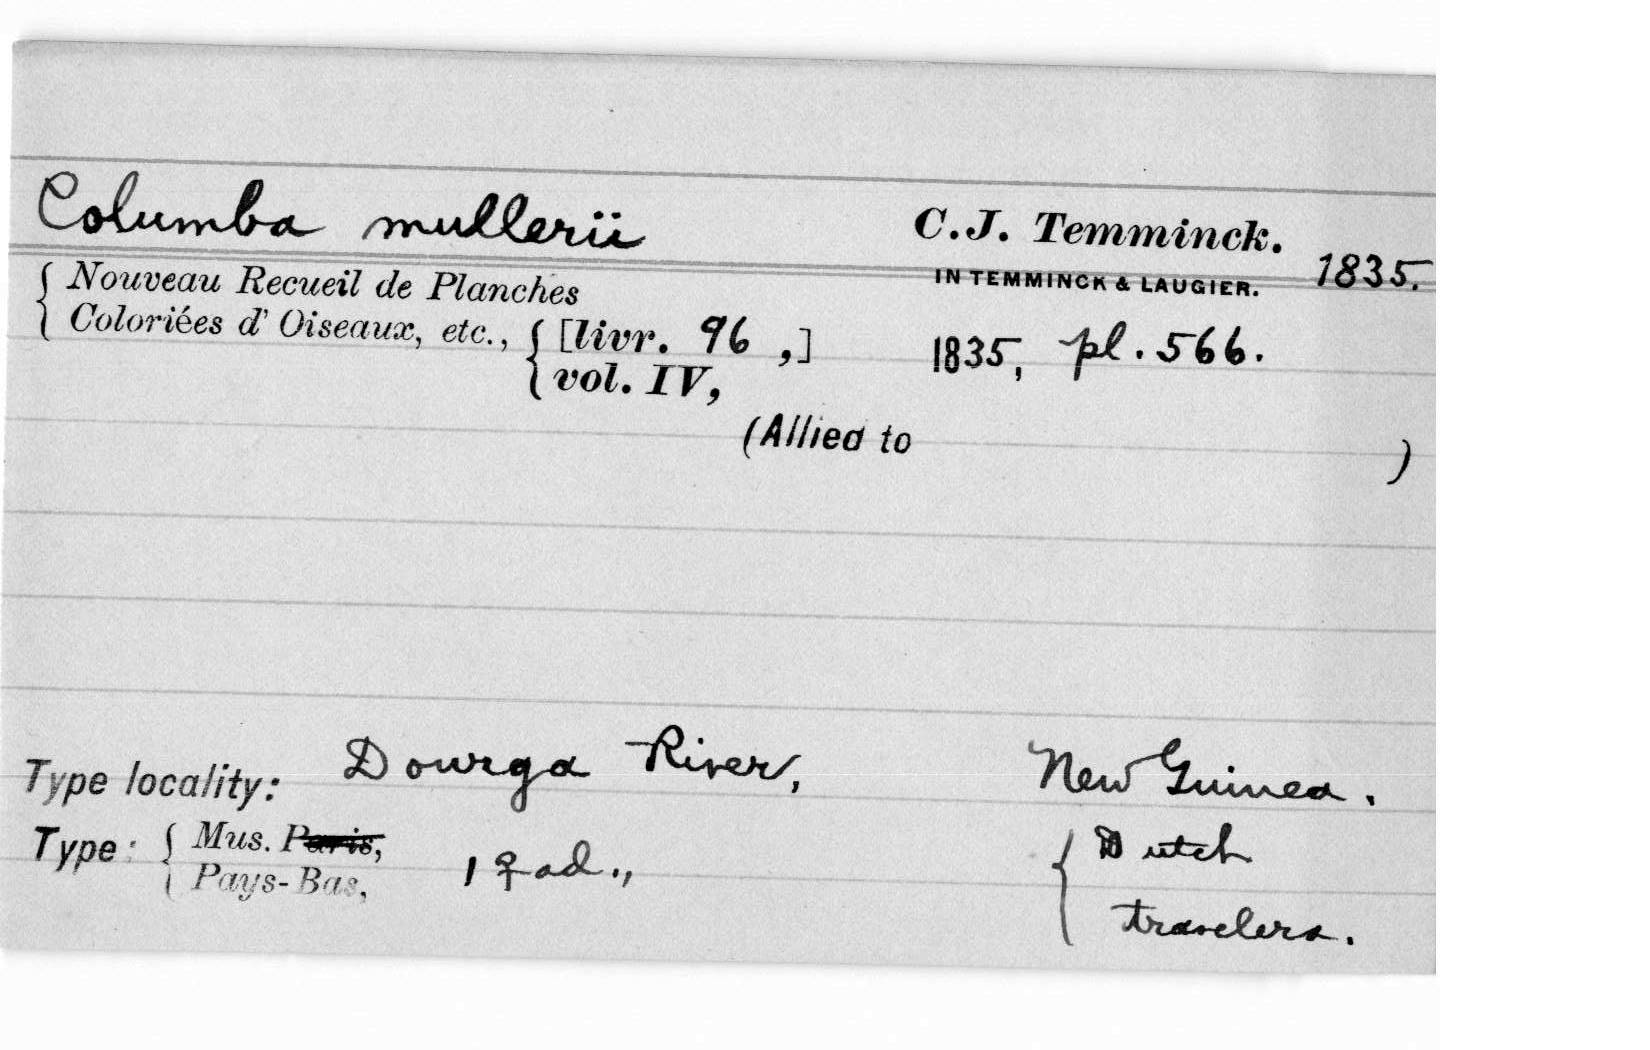 Columba mullerii C.J. Temminck.
IN TEMMINCK & LAUGIER. 1835.
{ Nouveau Recueil de Planches
Coloriées d' Oiseaux, etc., { [livr. 96 ,] 1835, pl. 566.
vol. IV,
(Allied to )
Type locality: Dourga River, New Guinea.
Type: { Mus. Paris, 1 ♀ ad., { Dutch
Pays-Bas, travelers.